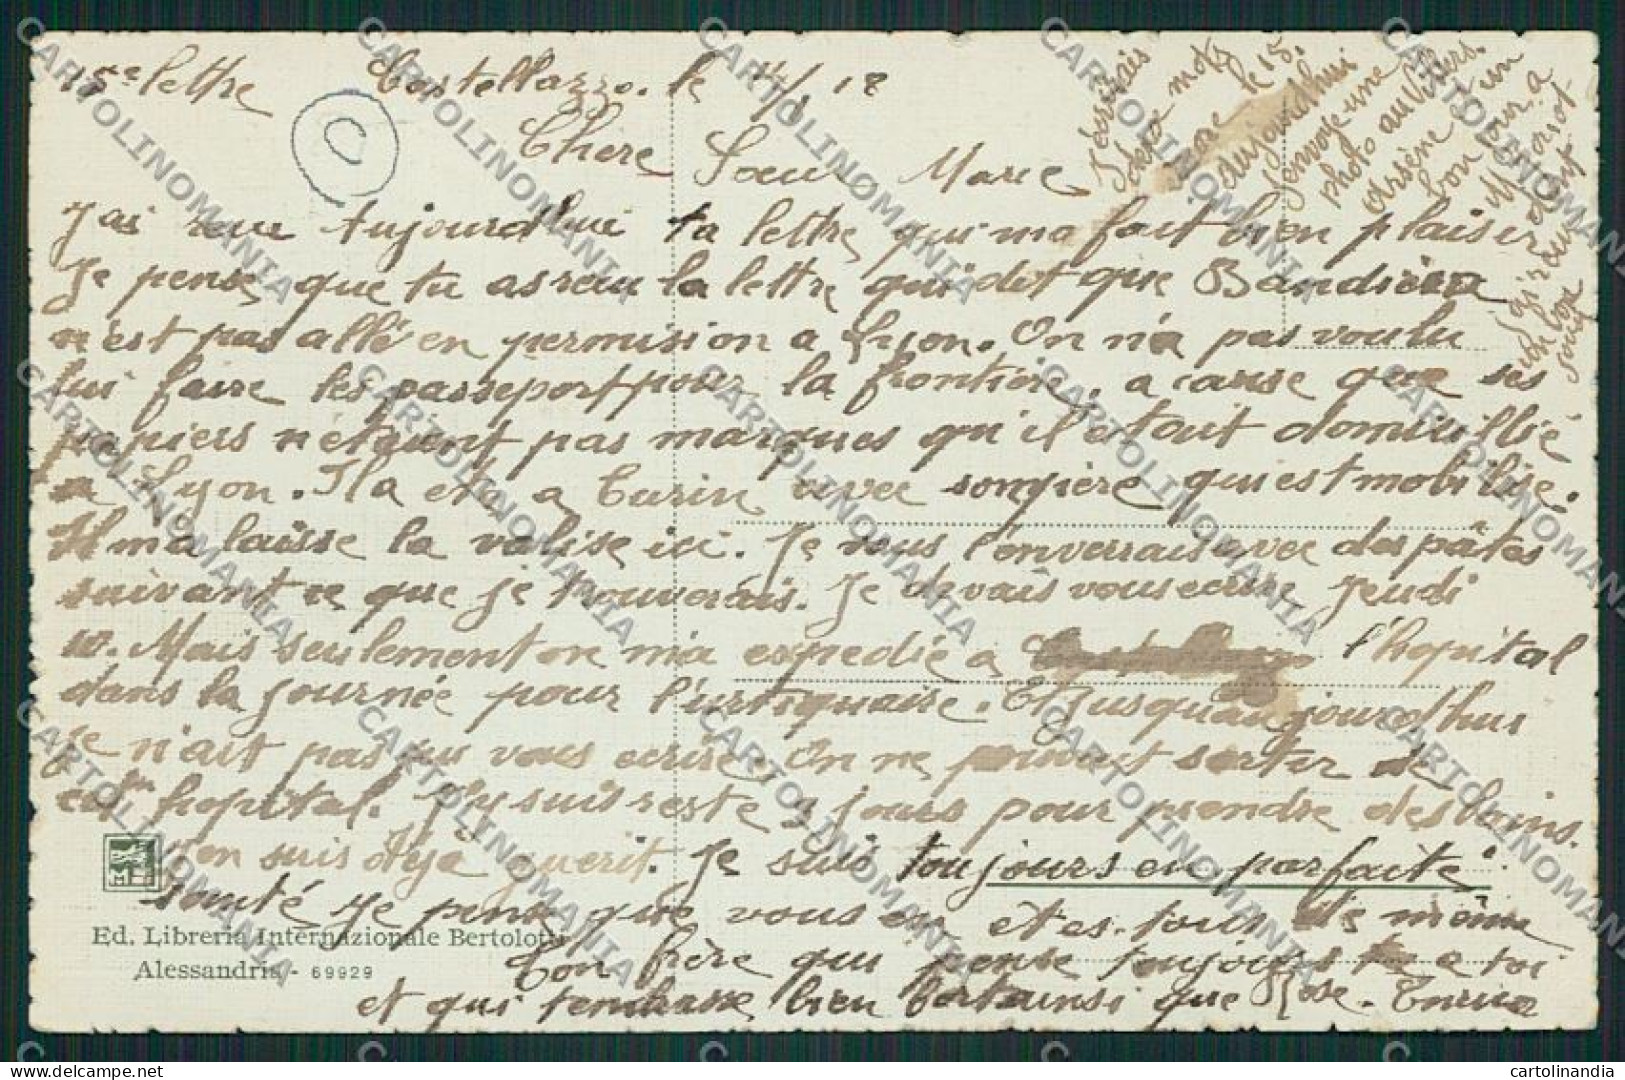 15e lettre Castellazzo. le /18
C
Chere Soeur Marie
J'ai reçu aujourd'hui ta lettre qui ma fait bien plaisir
Je pense que tu as reçu la lettre qui dit que Bandiera
n'est pas allé en permision a Lyon. On n'a pas voulu
lui faire les passeport pour la frontière, a cause que ses
papiers n'étaient pas marques qu'il etait domicillié
a Lyon. Il a eté a Turin avec son père qui est mobilisé.
Il m'a laisse la valise ici. Je vous l'enverrais avec des pâtes
suivant ce que je trouverais. Je devais vous ecrire Jeudi
Mais seulement on m'a expedié a l'hopital
dans la journée pour l'urtiquaire. Et jusqu'aujourd'hui
je n'ait pas pu vous ecrire. On ne pouvait sortir de
hopital. J'y suis resté 3 jours pour prendre des bains.
J'en suis deja guerit. Je suis toujours en parfaite
santé je pense que vous en etes tous de même
Ton frère qui pense toujours a toi
et qui t'embrasse bien fort ainsi que Rose.
J'écrirais
deux mots
le 15.
Aujourd'hui
J'envoye une
photo au Villers.
Arsène
bon
Ed. Libreria Internazionale Bertolotti
Alessandria - 69929
CARTOLINOMANIA
cartolinandia